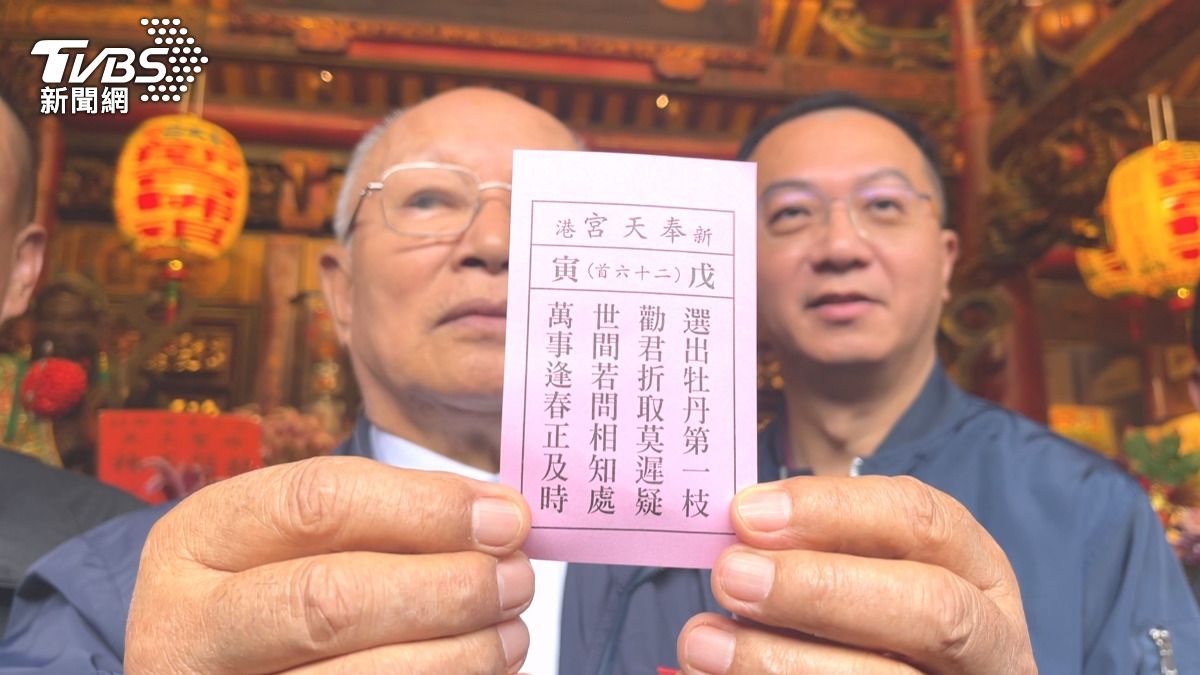 TVBS
新聞網
新奉天宮港
戊(二十六首)寅
選出牡丹第一枝
勸君折取莫遲疑
世間若問相知處
萬事逢春正及時